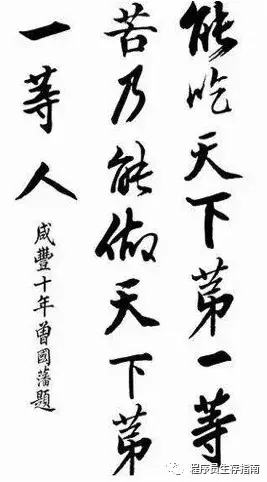 能吃天下第一等
苦乃能做天下第
一等人
咸豐十年曾國藩題
程序员生存指南